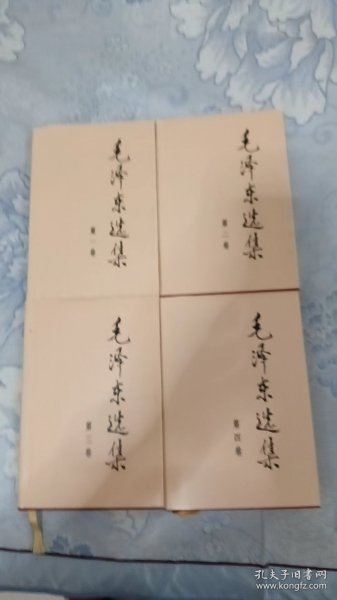 毛泽东选集
第一卷
毛泽东选集
第二卷
毛泽东选集
第三卷
毛泽东选集
第四卷
孔夫子旧书网
www.kongfz.com